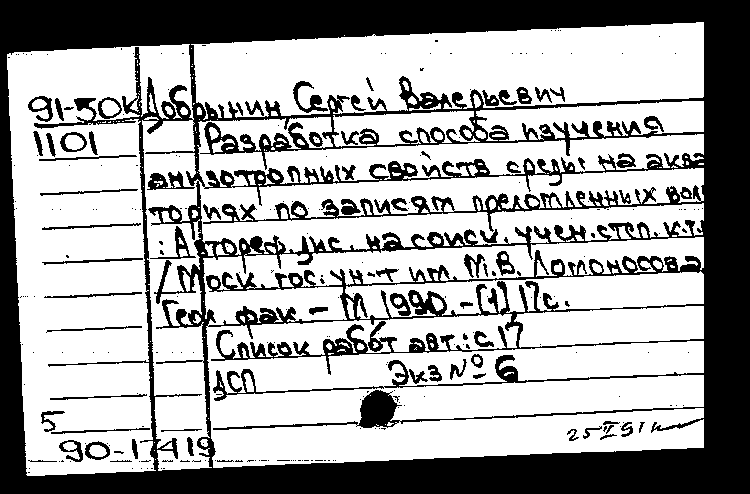 91-50к Добрынин Сергей Валерьевич
1101 Разработка способа изучения
анизотропных свойств среды на аква
ториях по записям преломленных вол
: Автореф. дис. на соиск. учен. степ. к.т.
/ Моск. гос. ун-т им. М.В. Ломоносова.
Геол. фак. – М, 1990. – [1], 17с.
Список работ авт.: с. 17
ДСП Экз № 6
5
90-17419
25 II 91